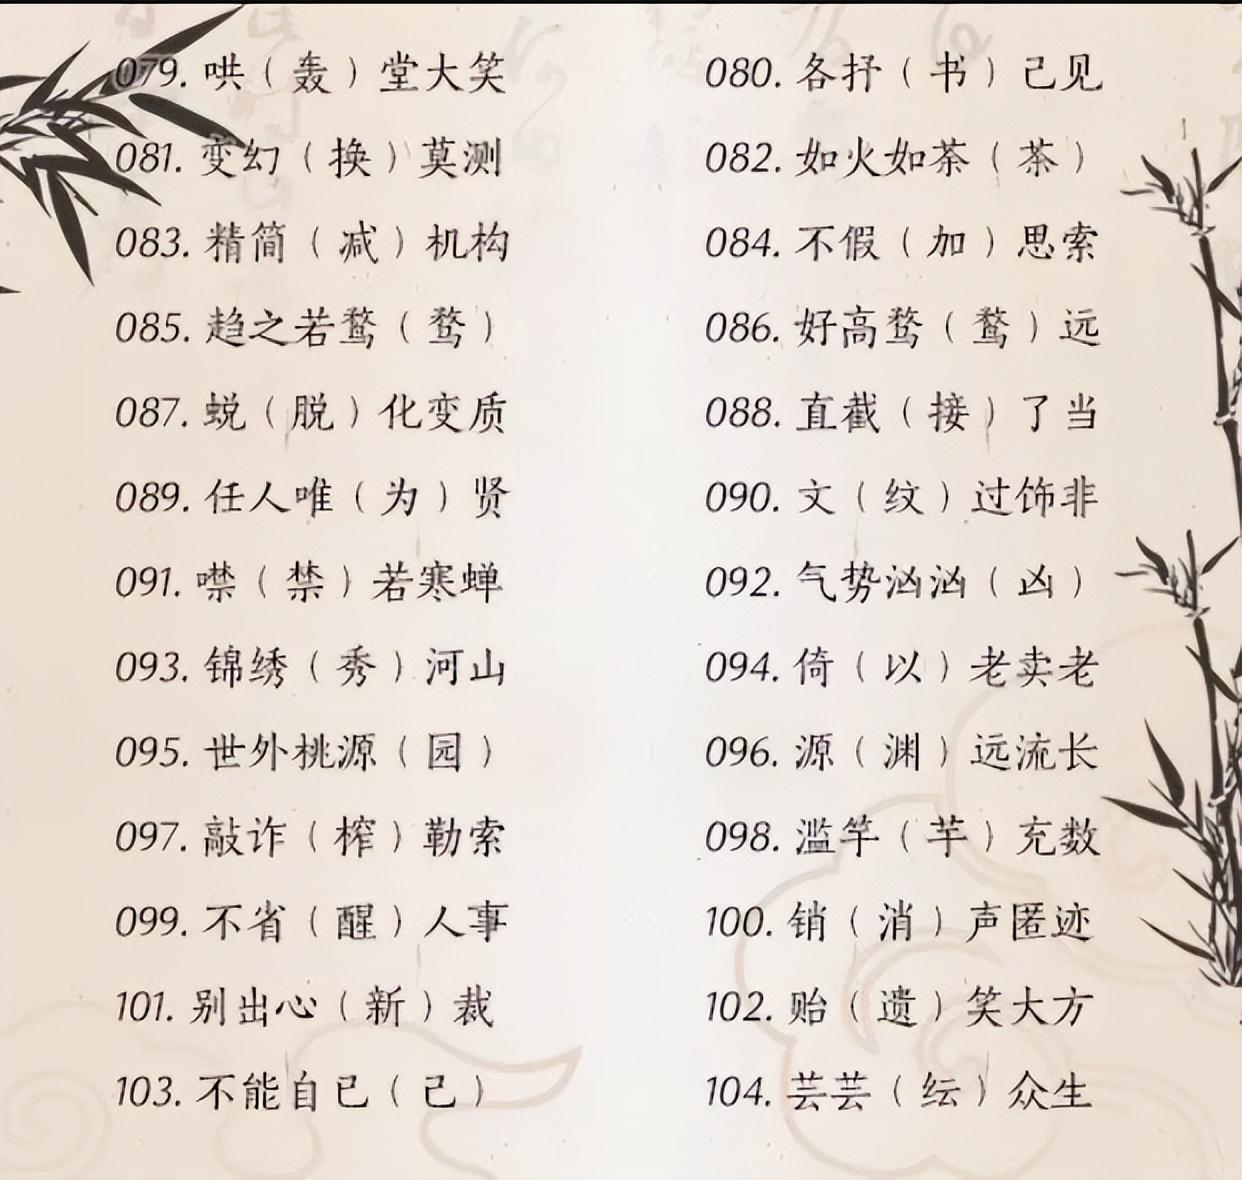 079. 哄（轰）堂大笑
080. 各抒（书）己见
081. 变幻（换）莫测
082. 如火如荼（茶）
083. 精简（减）机构
084. 不假（加）思索
085. 趋之若鹜（骛）
086. 好高骛（鹜）远
087. 蜕（脱）化变质
088. 直截（接）了当
089. 任人唯（为）贤
090. 文（纹）过饰非
091. 噤（禁）若寒蝉
092. 气势汹汹（凶）
093. 锦绣（秀）河山
094. 倚（以）老卖老
095. 世外桃源（园）
096. 源（渊）远流长
097. 敲诈（榨）勒索
098. 滥竽（芋）充数
099. 不省（醒）人事
100. 销（消）声匿迹
101. 别出心（新）裁
102. 贻（遗）笑大方
103. 不能自已（己）
104. 芸芸（纭）众生